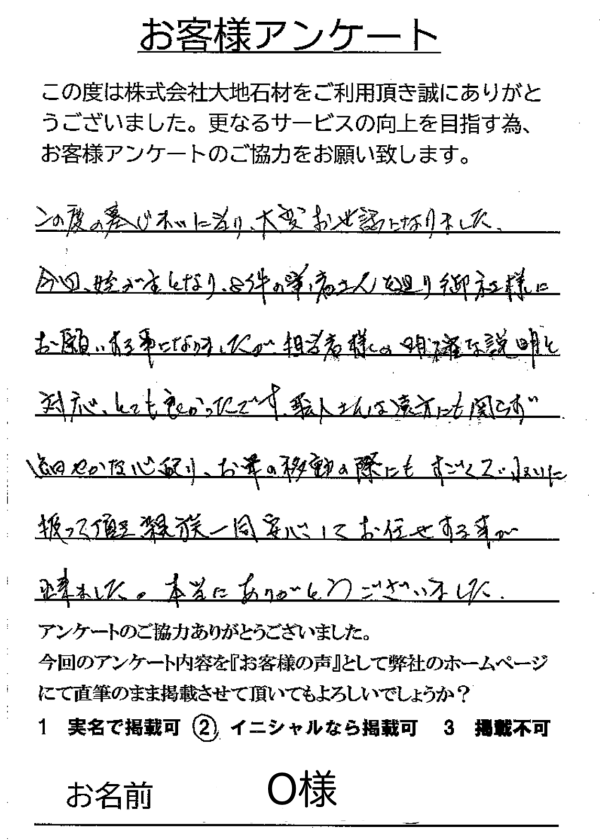 お客様アンケート
この度は株式会社大地石材をご利用頂き誠にありがと
うございました。更なるサービスの向上を目指す為、
お客様アンケートのご協力をお願い致します。
この度の墓じまいに当り、大変お世話になりました。
今回、姪が主となり、8件の業者さんを廻り御社様に
お願いする事になりましたが、担当者様の明確な説明と
対応、とても良かったです。職人さんは遠方にも関らず
細やかな心配り、お墓の移動の際にもすごくていねいに
扱って頂き親族一同安心してお任せする事が
出来ました。本当にありがとうございました。
アンケートのご協力ありがとうございました。
今回のアンケート内容を『お客様の声』として弊社のホームページ
にて直筆のまま掲載させて頂いてもよろしいでしょうか？
1 実名で掲載可 ② イニシャルなら掲載可 3 掲載不可
お名前 O様